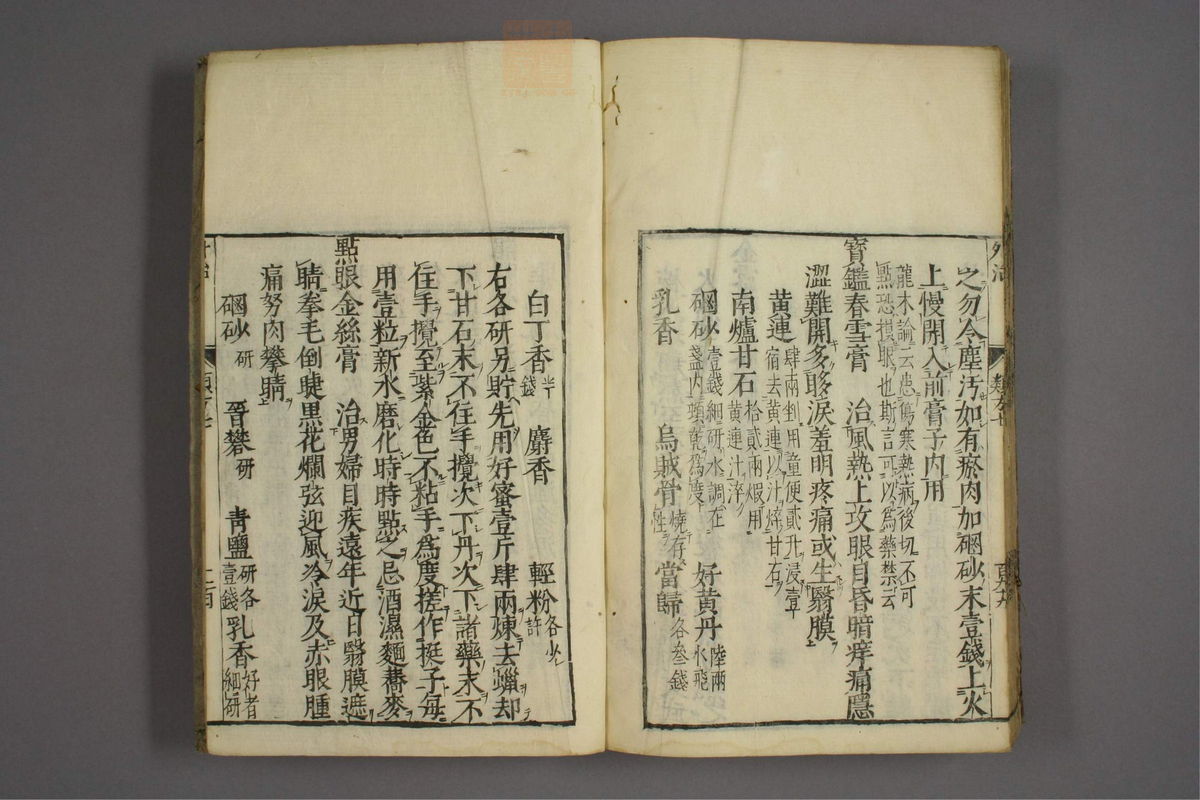 之勿令塵汚如有瘀肉加硇砂末壹錢上火
上慢開入前膏子內用
龍木論云患傷寒熱病後切不可
點恐損眼也斯言可以為藥禁云
寶鑑春雪膏 治風熱上攻眼目昏暗痒痛隱
澀難開多眵淚羞明疼痛或生翳膜
黄連 肆兩剉用童便貳升浸壹
宿去黄連以汁淬甘石
南爐甘石 拾貳兩煅用
黄連汁淬
硇砂 壹錢細研水調在
盞內頓乾為度
好黄丹 陸兩
水飛
乳香 烏賊骨 燒存
性
當歸 各叁錢
白丁香 半
錢
麝香 輕粉 各少
許
右各研另貯先用好蜜壹斤肆兩煉去蠟却
下甘石末不住手攪次下丹次下諸藥末不
住手攪至紫金色不粘手為度搓作挺子每
用壹粒新水磨化時時點之忌酒濕麵蕎麥
點眼金絲膏 治男婦目疾遠年近日翳膜遮
睛拳毛倒睫黒花爛弦迎風冷淚及赤眼腫
痛努肉攀睛
硇砂 研 晉礬 研 青鹽 研各
壹錢
乳香 好者
細研